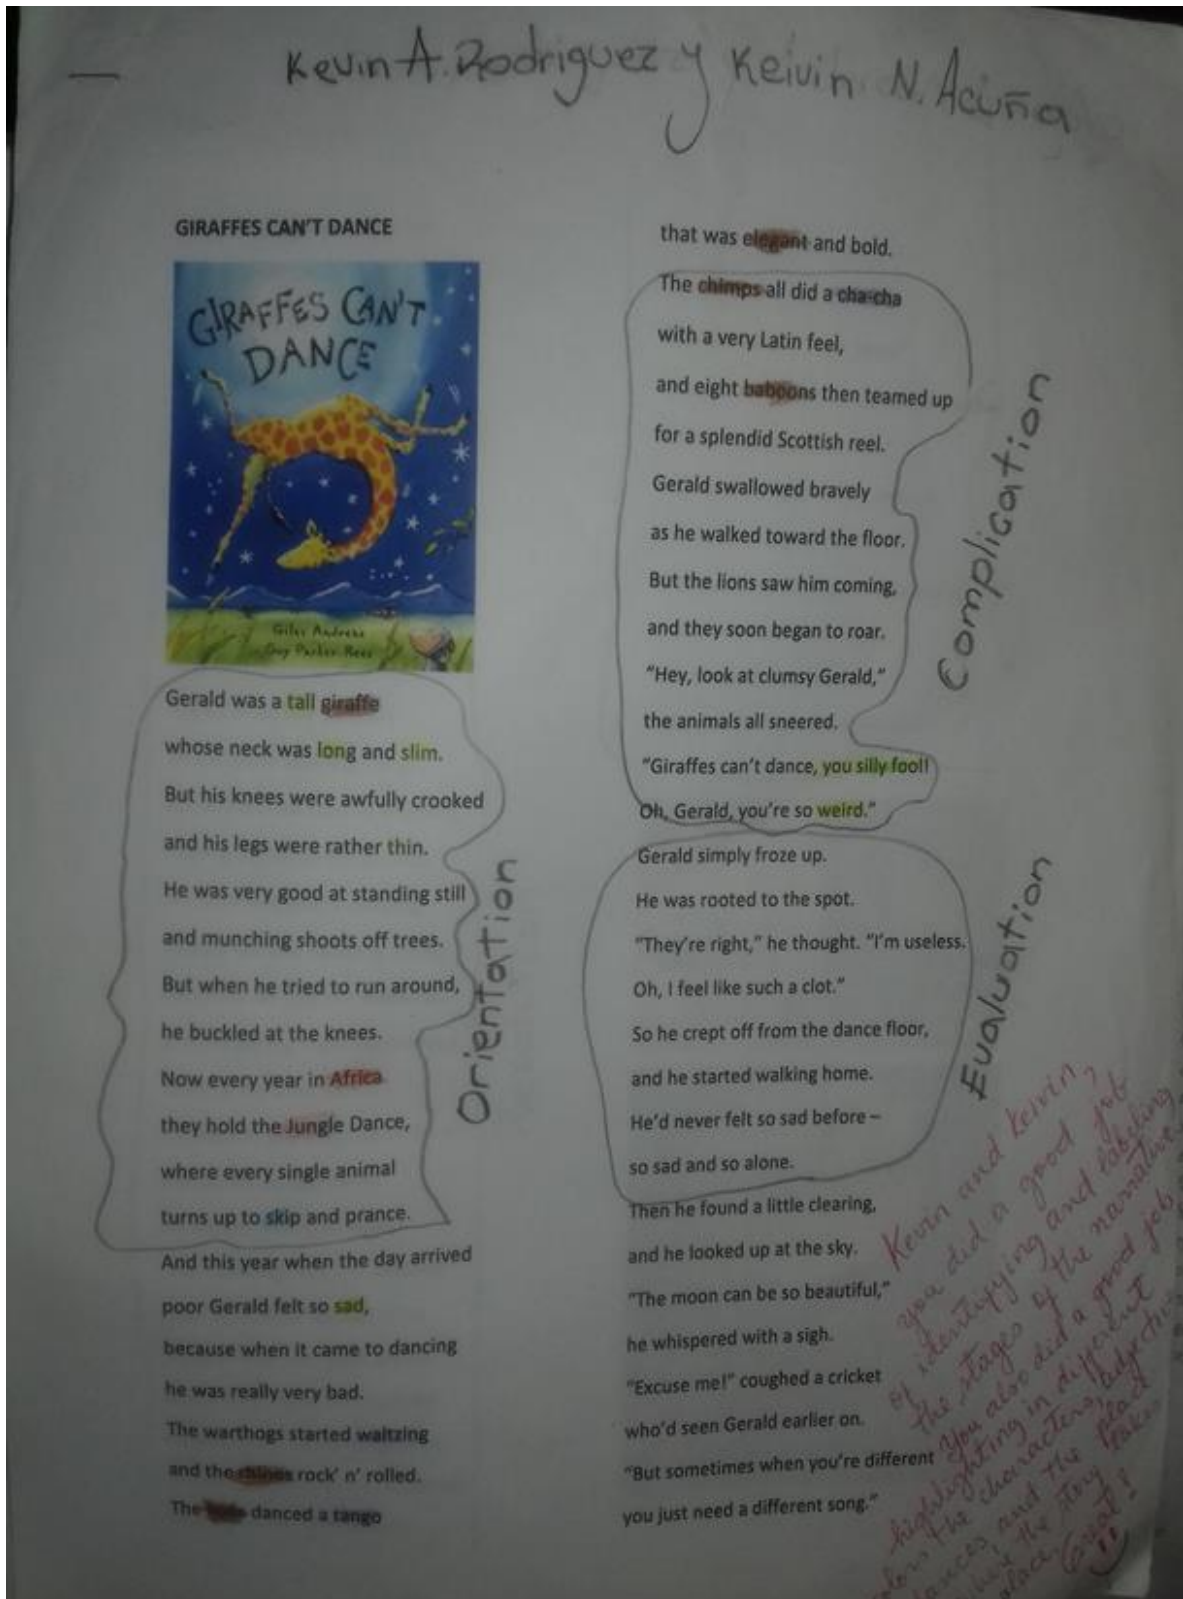 Kevin A. Rodriguez y Keivin N. Acuña
GIRAFFES CAN'T DANCE
GIRAFFES CAN'T
DANCE
Giles Andreae
Guy Parker-Rees
Gerald was a tall giraffe
whose neck was long and slim.
But his knees were awfully crooked
and his legs were rather thin.
He was very good at standing still
and munching shoots off trees.
But when he tried to run around,
he buckled at the knees.
Now every year in Africa
they hold the Jungle Dance,
where every single animal
turns up to skip and prance.
Orientation
And this year when the day arrived
poor Gerald felt so sad,
because when it came to dancing
he was really very bad.
The warthogs started waltzing
and the rhinos rock' n' rolled.
The danced a tango
that was elegant and bold.
The chimps all did a cha-cha
with a very Latin feel,
and eight baboons then teamed up
for a splendid Scottish reel.
Gerald swallowed bravely
as he walked toward the floor.
But the lions saw him coming,
and they soon began to roar.
"Hey, look at clumsy Gerald,"
the animals all sneered.
"Giraffes can't dance, you silly fool!
Oh, Gerald, you're so weird."
Complication
Gerald simply froze up.
He was rooted to the spot.
"They're right," he thought. "I'm useless.
Oh, I feel like such a clot."
So he crept off from the dance floor,
and he started walking home.
He'd never felt so sad before –
so sad and so alone.
Evaluation
Then he found a little clearing,
and he looked up at the sky.
"The moon can be so beautiful,"
he whispered with a sigh.
"Excuse me!" coughed a cricket
who'd seen Gerald earlier on.
"But sometimes when you're different
you just need a different song."
Kevin and Keivin,
you did a good job
of identifying and labeling
the stages of the narrative.
You also did a good job
highlighting in different
the characters,
dances, and the place
where the story takes
place. Great!